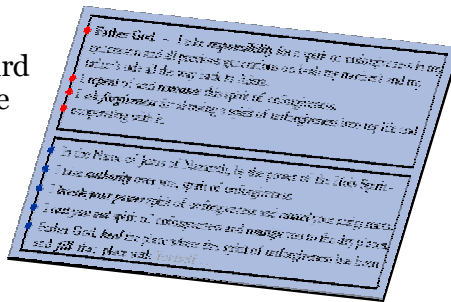 ard
e
Father God – I take responsibility for a spirit of unforgiveness in my
generation and all previous generations on both my mother's and my
father's side all the way back to Adam.
I repent of and renounce this spirit of unforgiveness.
I ask forgiveness for allowing a spirit of unforgiveness into my life and
cooperating with it.
In the Name of Jesus of Nazareth, by the power of the Holy Spirit-
I take authority over you, spirit of unforgiveness.
I break your power spirit of unforgiveness and cancel your assignment.
I cast you out spirit of unforgiveness and assign you to the dry places.
Father God, heal the place where this spirit of unforgiveness has been
and fill that place with